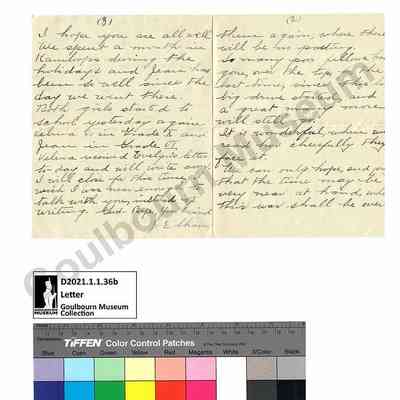 (3)
I hope you are all well
We spent a month in
Kamloops during the
holidays and Jean has
been so well since the
day we went there.
Both girls started to
school yesterday again
Velma in Grade X and
Jean in Grade VI.
Velma received Evelyn's letter
to-day and will write soon
I will close for this time
wish I was near enough to
talk with you, instead of
writing.
(2)
them again, where there
will be no parting.
So many poor fellows have
gone over the top for the
last time, since this
big drive started and
a great many more
will still go.
It is wonderful, where men
cheerfully they
face it.
We can only hope, and pray
that the time may be
very near at hand, when
this war shall be over
Goulbourn Museum
D2021.1.1.36b
Letter
Goulbourn Museum
Collection
GOULBOURN
MUSEUM
TIFFEN Color Control Patches
Blue Cyan Green Yellow Red Magenta White 3/Color Black